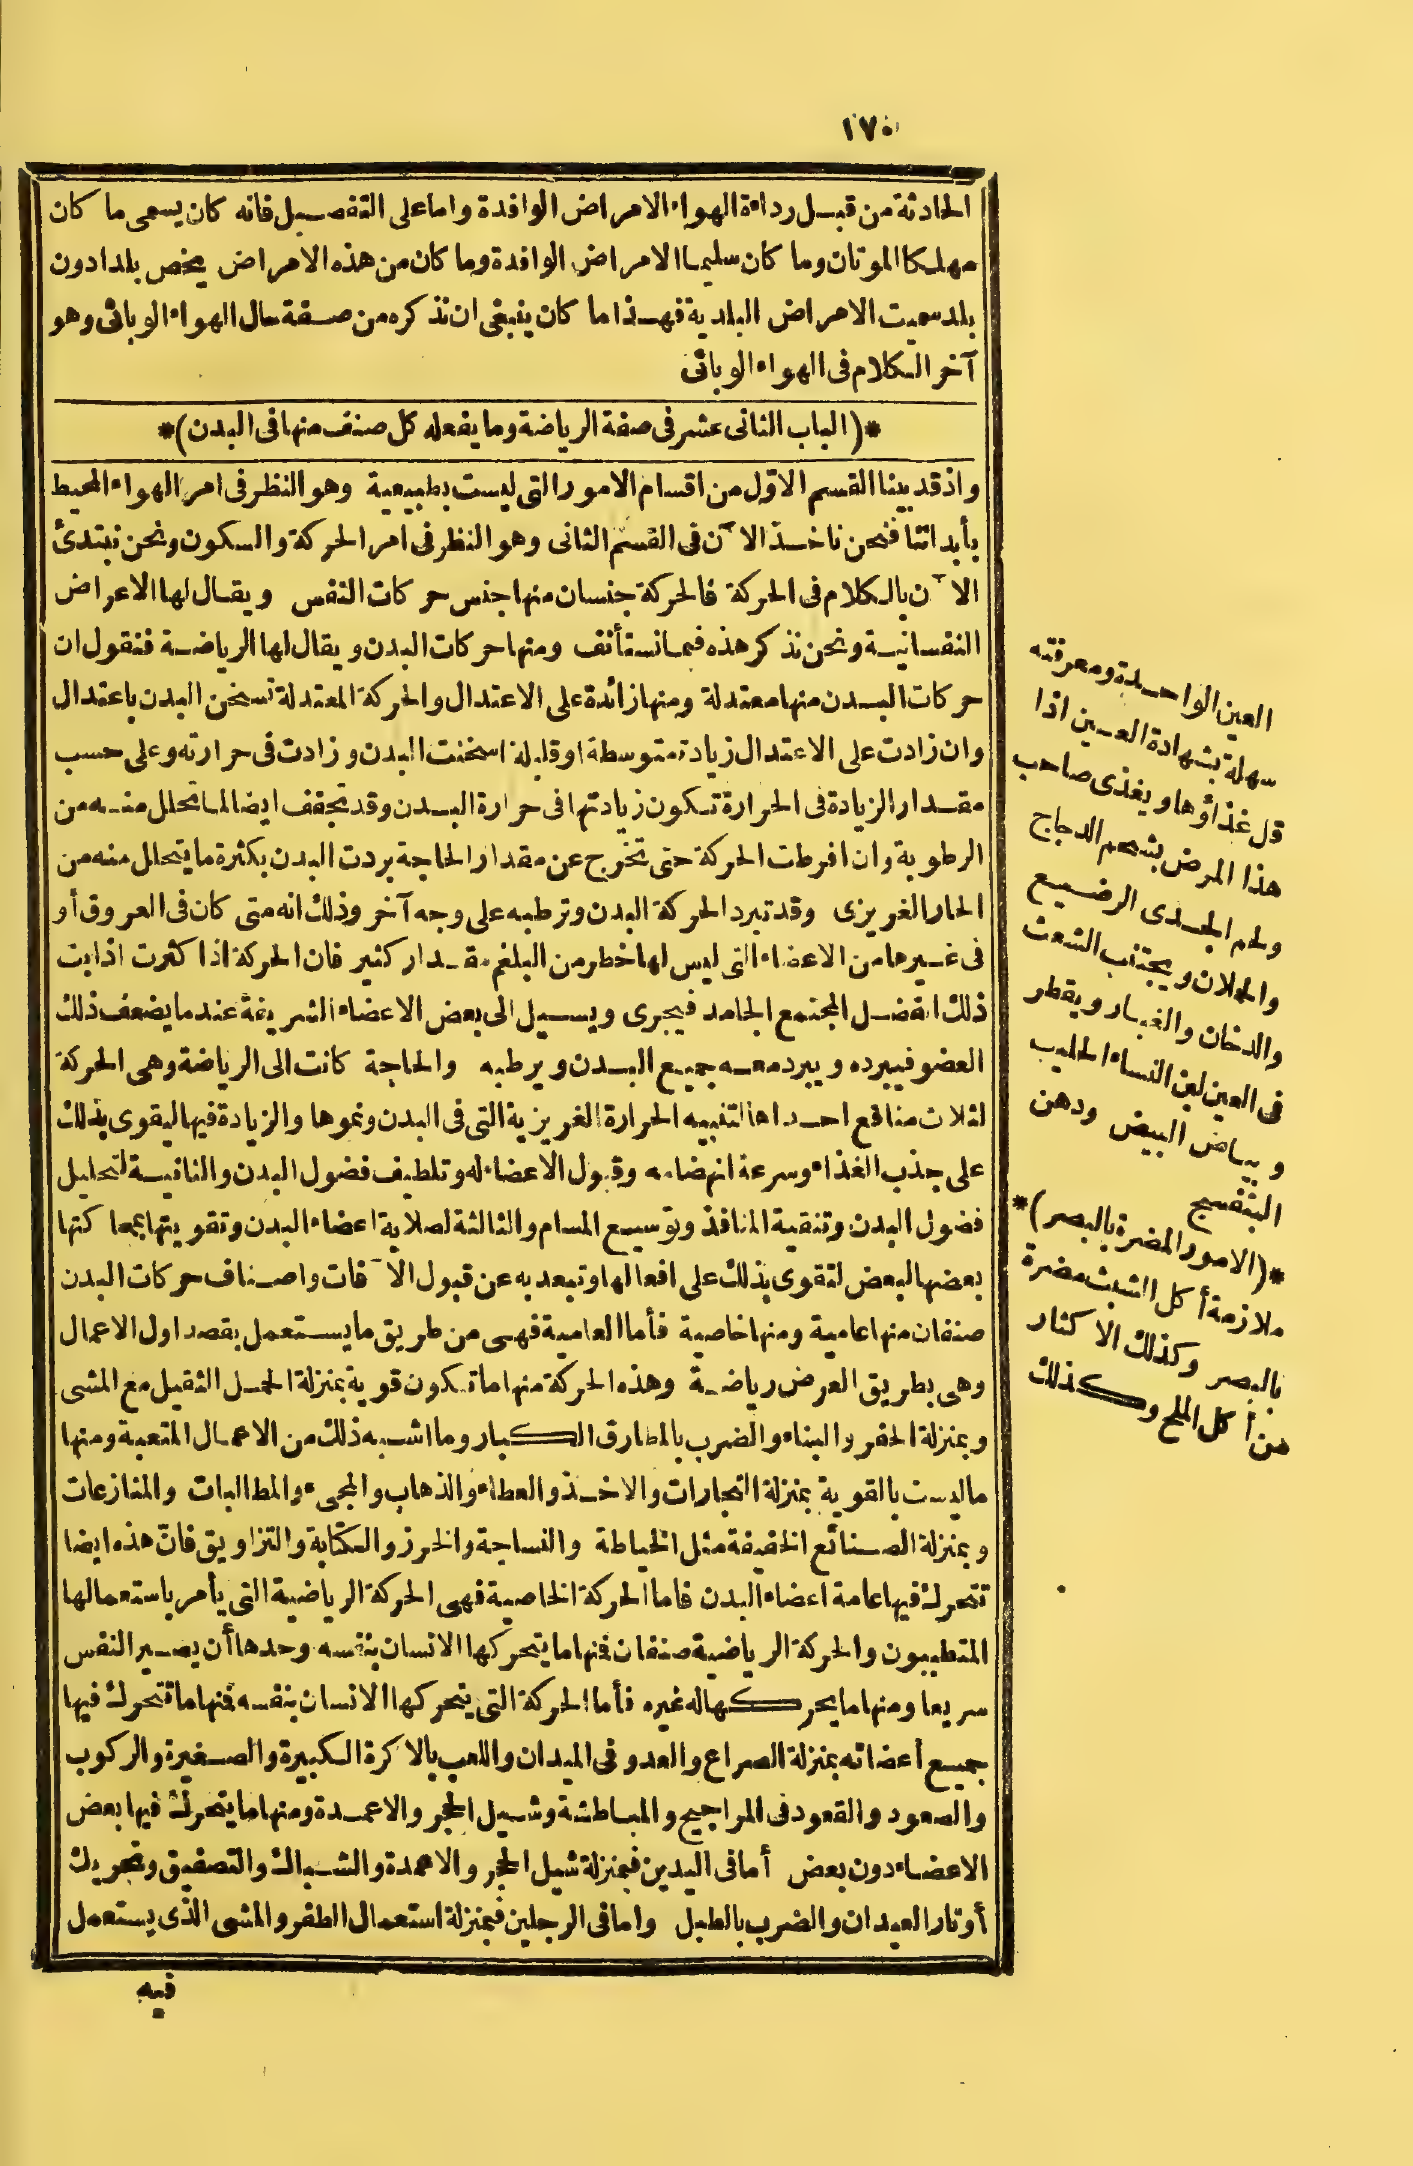 ١٧٠
الحادثة من قبل رداءة الهواء الامراض الوافدة واما على التفصيل فانه كان يسمى ما كان
مهلكا الموتان وما كان سليما الامراض الوافدة وما كان من هذه الامراض يخص بلدا دون
بلد سميت الامراض البلدية فهذا ما كان ينبغى ان نذكره من صفة حال الهواء الوبائى وهو
آخر الكلام فى الهواء الوبائى
*(الباب الثانى عشر فى صفة الرياضة وما يفعله كل صنف منها فى البدن)*
واذ قد بينا القسم الاوّل من اقسام الامور التى ليست بطبيعية وهو النظر فى امر الهواء المحيط
بأبداننا فنحن ناخذ الآن فى القسم الثانى وهو النظر فى امر الحركة والسكون ونحن نبتدئ
الآن بالكلام فى الحركة فالحركة جنسان منها جنس حركات النفس ويقال لها الاعراض
النفسانية ونحن نذكر هذه فيما نستأنف ومنها حركات البدن ويقال لها الرياضة فنقول ان
حركات البدن منها معتدلة ومنها زائدة على الاعتدال والحركة المعتدلة تسخن البدن باعتدال
وان زادت على الاعتدال زيادة متوسطة او قليلة اسخنت البدن وزادت فى حرارته وعلى حسب
مقدار الزيادة فى الحرارة تكون زيادتها فى حرارة البدن وقد تجفف ايضا لما تحلل منه من
الرطوبة وان افرطت الحركة حتى تخرج عن مقدار الحاجة بردت البدن بكثرة ما يتحلل منه من
الحار الغريزى وقد تبرد الحركة البدن وترطبه على وجه آخر وذلك انه متى كان فى العروق أو
فى غيرها من الاعضاء التى ليس لها خطر من البلغم مقدار كثير فان الحركة اذا كثرت اذابت
ذلك الفضل المجتمع الجامد فيجرى ويسيل الى بعض الاعضاء الشريفة عندما يضعف ذلك
العضو فيبرده ويبرد معه جميع البدن ويرطبه والحاجة كانت الى الرياضة وهى الحركة
لثلاث منافع احداها لتنبيه الحرارة الغريزية التى فى البدن ونموها والزيادة فيها ليقوى بذلك
على جذب الغذاء وسرعة انهضامه وقبول الاعضاء له وتلطيف فضول البدن والثانية لتحليل
فضول البدن وتنقية المنافذ وتوسيع المسام والثالثة لصلابة اعضاء البدن وتقويتها بمحاكتها
بعضها لبعض لتقوى بذلك على افعالها وتبعد به عن قبول الآفات واصناف حركات البدن
صنفان منها عامية ومنها خاصية فأما العامية فهى من طريق ما يستعمل بقصد اول الاعمال
وهى بطريق العرض رياضة وهذه الحركة منها ما تكون قوية بمنزلة الحمل الثقيل مع المشى
وبمنزلة الحفر والبناء والضرب بالمطارق الكبار وما اشبه ذلك من الاعمال المتعبة ومنها
ما ليست بالقوية بمنزلة التجارات والاخذ والعطاء والذهاب والمجىء والمطالبات والمنازعات
وبمنزلة الصنائع الخفيفة مثل الخياطة والنساجة والخرز والكتابة والتزاويق فانّ هذه ايضا
تتحرك فيها عامة اعضاء البدن فاما الحركة الخاصية فهى الحركة الرياضية التى يأمر باستعمالها
المتطببون والحركة الرياضية صنفان فمنها ما يتحركها الانسان بنفسه وحدها أن يصير النفس
سريعا ومنها ما يحركها له غيره فأما الحركة التى يتحركها الانسان بنفسه فمنها ما تتحرك فيها
جميع أعضائه بمنزلة الصراع والعدو فى الميدان واللعب بالاكرة الكبيرة والصغيرة والركوب
والصعود والقعود فى المراجيح والمباطشة وشيل الحجر والاعمدة ومنها ما يتحرك فيها بعض
الاعضاء دون بعض أما فى اليدين فبمنزلة شيل الحجر والاعمدة والشباك والتصفيق وتحريك
أوتار العيدان والضرب بالطبل واما فى الرجلين فبمنزلة استعمال الطفر والمشى الذى يستعمل
فيه
العين الواحدة ومعرفته
سهلة بشهادة العين اذا
قل غذاؤها ويغذى صاحب
هذا المرض بشحم الدجاج
ولحم الجدى الرضيع
والحملان ويجتنب الشعث
والدخان والغبار ويقطر
فى العين لبن النساء الحليب
وبياض البيض ودهن
البنفسج
*(الامور المضرة بالبصر)*
ملازمة أكل الشبث مضرة
بالبصر وكذلك الاكثار
من أكل الملح وكذلك